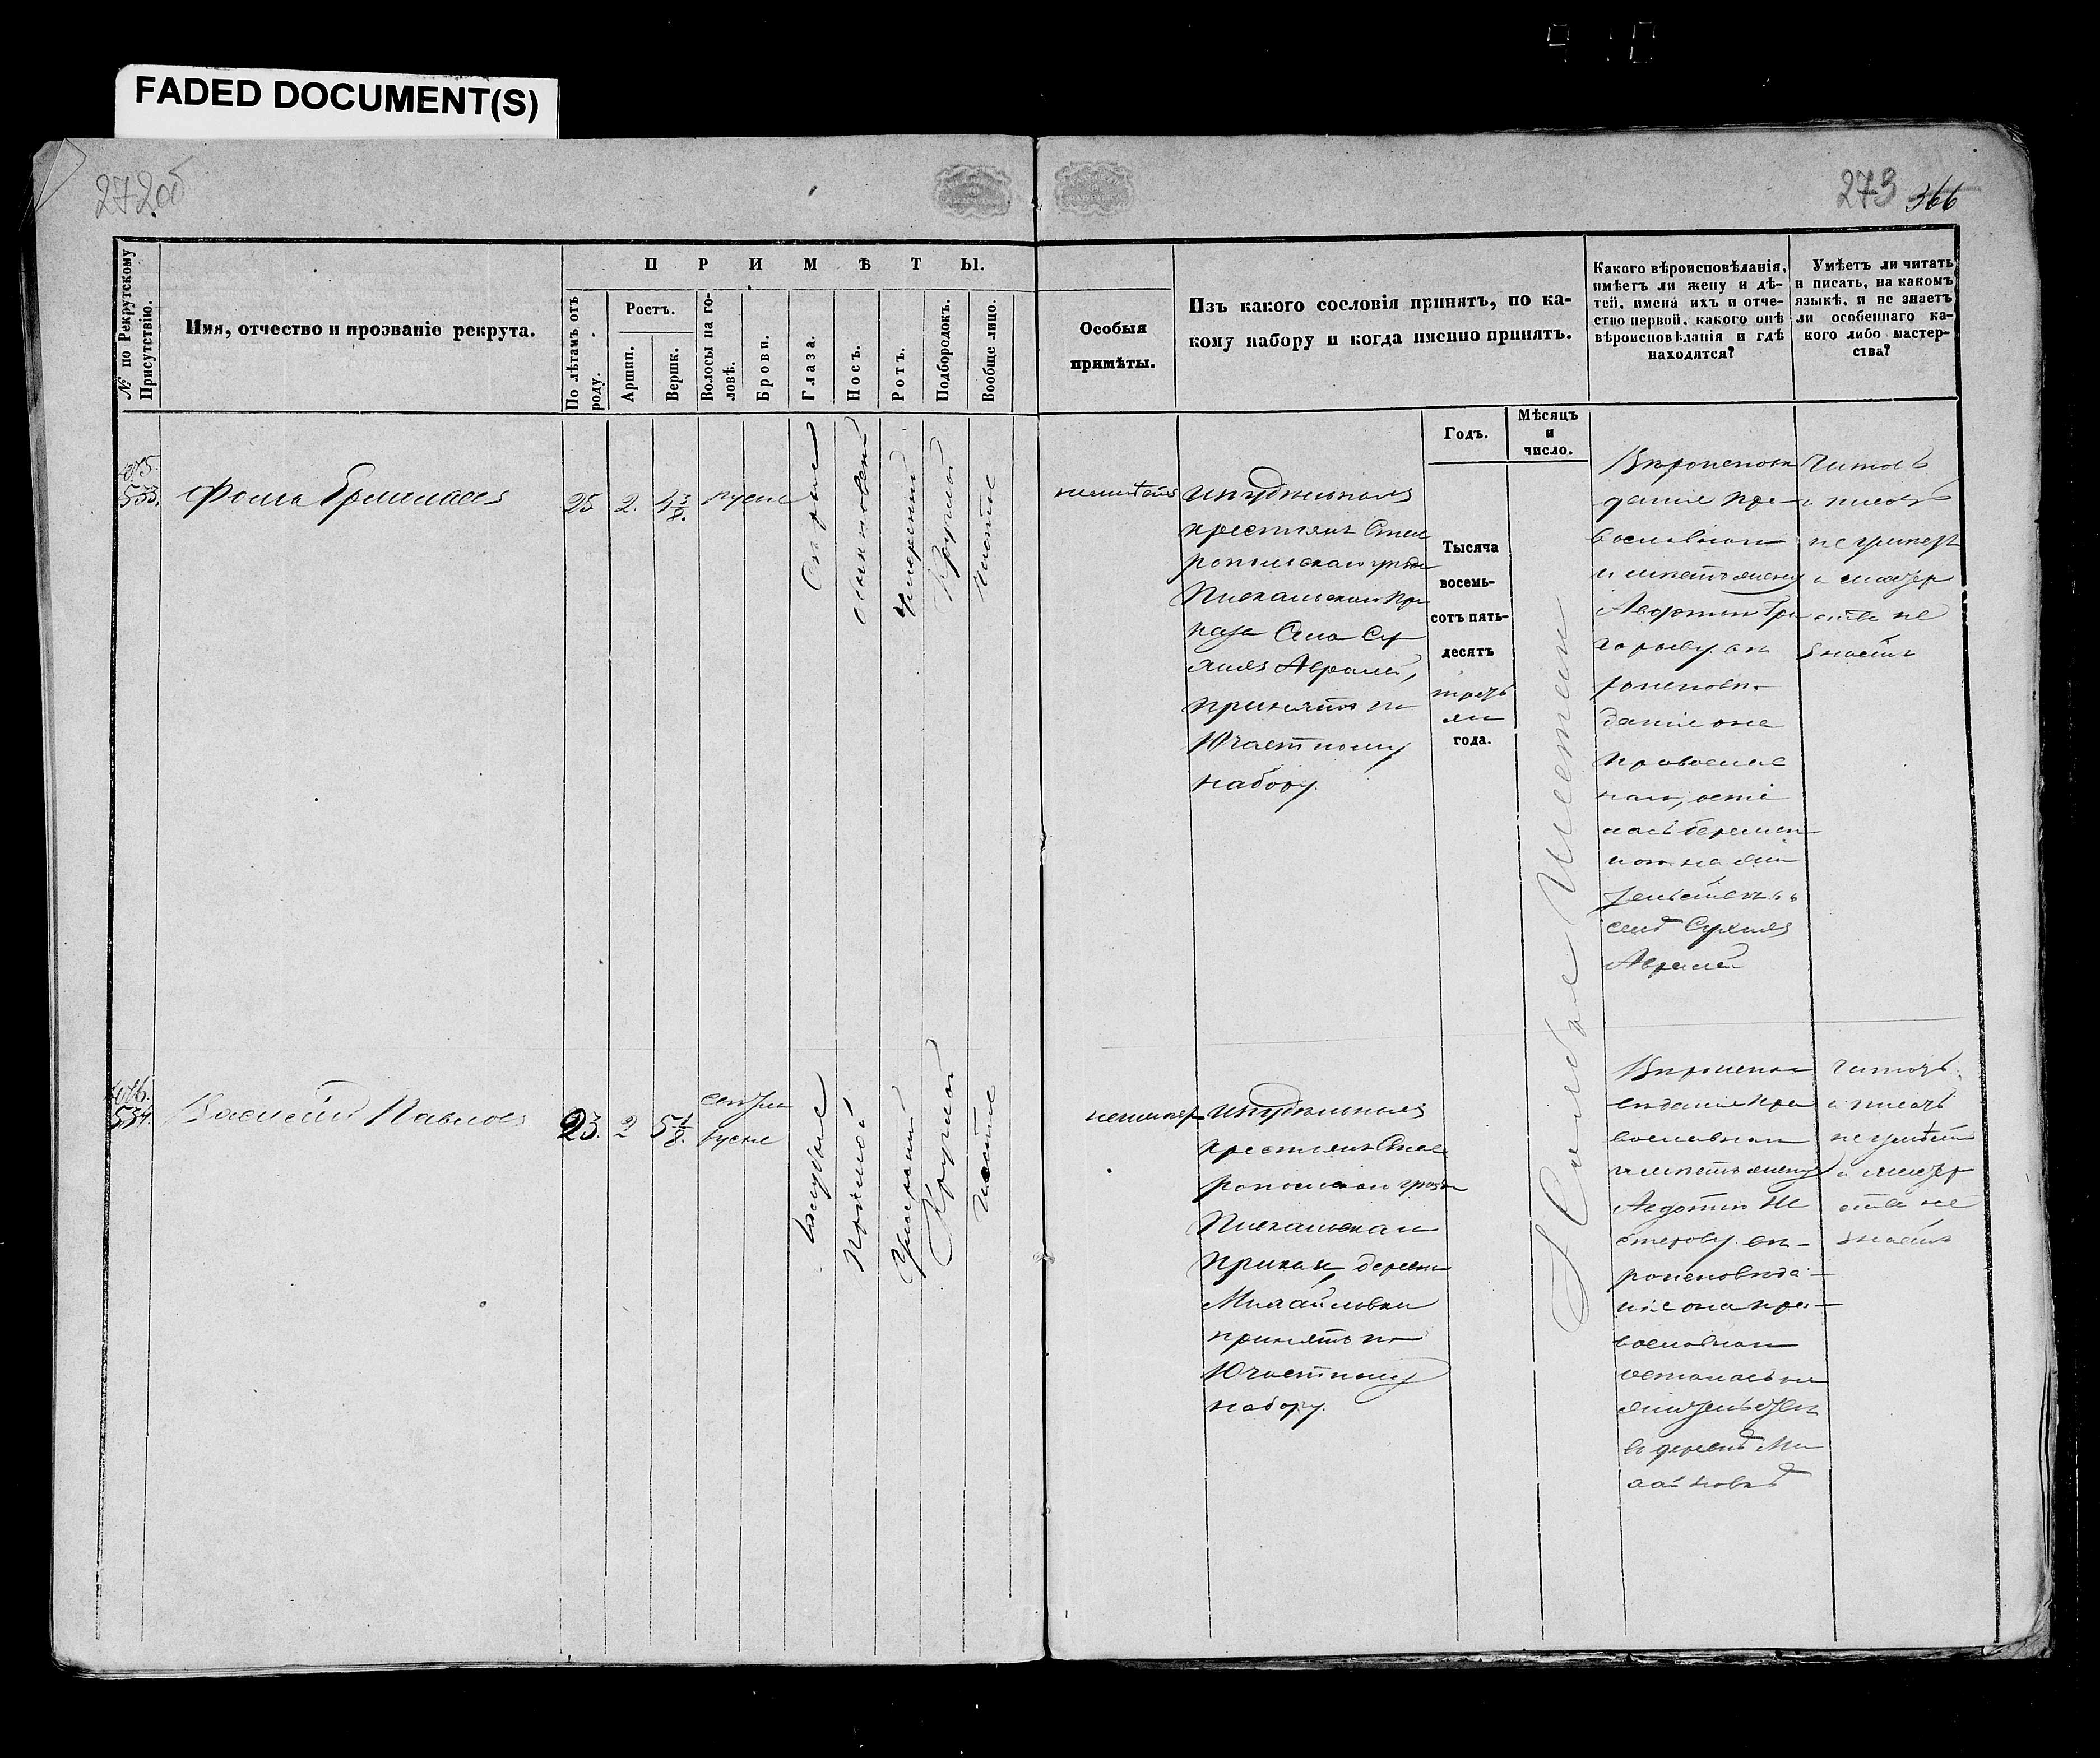 FADED DOCUMENT(S)
272об
273 366
№ по Рекрутскому Присутствію.
Имя, отчество и прозваніе рекрута.
ПРИМѢТЫ.
По лѣтамъ отъ роду.
Ростъ.
Аршин.
Вершк.
Волосы на головѣ.
Брови.
Глаза.
Носъ.
Ротъ.
Подбородокъ.
Вообще лицо.
Особыя
примѣты.
Изъ какого сословія принятъ, по ка-
кому набору и когда именно принятъ.
Годъ.
Мѣсяцъ
и
число.
Какого вѣроисповѣданія,
имѣетъ ли жену и дѣ-
тей, имена ихъ и отче-
ство первой, какого онѣ
вѣроисповѣданія и гдѣ
находятся?
Умѣетъ ли читать
и писать, на какомъ
языкѣ, и не знаетъ
ли особеннаго ка-
кого либо мастер-
ства?
533.
Фома
25
2.
4 3/8.
русые
Сѣрые
умѣренный
Круглый
Чистое
изъ удѣльныхъ
крестьянъ Став
ропольскаго уѣзда
Пискальскаго При
каза Села Су
Авралей,
принятъ по
10 частному
набору.
Тысяча
восемь-
сотъ пять-
десятъ
третья
го
года.
Вѣроисповѣ
данія пра-
вославнаго
и имѣетъ жену
Авдотью Гри
горьеву вѣ
роисповѣ-
данія она
православ
наго, оста
лась беремен
ною на жи
тельствѣ въ
селѣ Сухихъ
Авралей
Читать
и писать
не умѣетъ
и мастер
ства не
знаетъ
534.
Василій Павловъ
23.
2
5 1/8.
свѣтло
русые
Голубые
Прямой
Умѣренный
Круглой
Чистое
не имѣетъ
изъ удѣльныхъ
крестьянъ Став
ропольскаго уѣзда
Пискальскаго
Приказа, деревни
Михайловки
принятъ по
10 частному
набору.
Вѣроиспо-
вѣданія пра
вославнаго
и имѣетъ жену
Авдотью Не
стерову вѣ-
роисповѣда-
нія она пра-
вославнаго
осталась на
жительствѣ
въ деревнѣ Ми
хайловкѣ
читать
и писать
не умѣетъ
и мастер
ства не
знаетъ